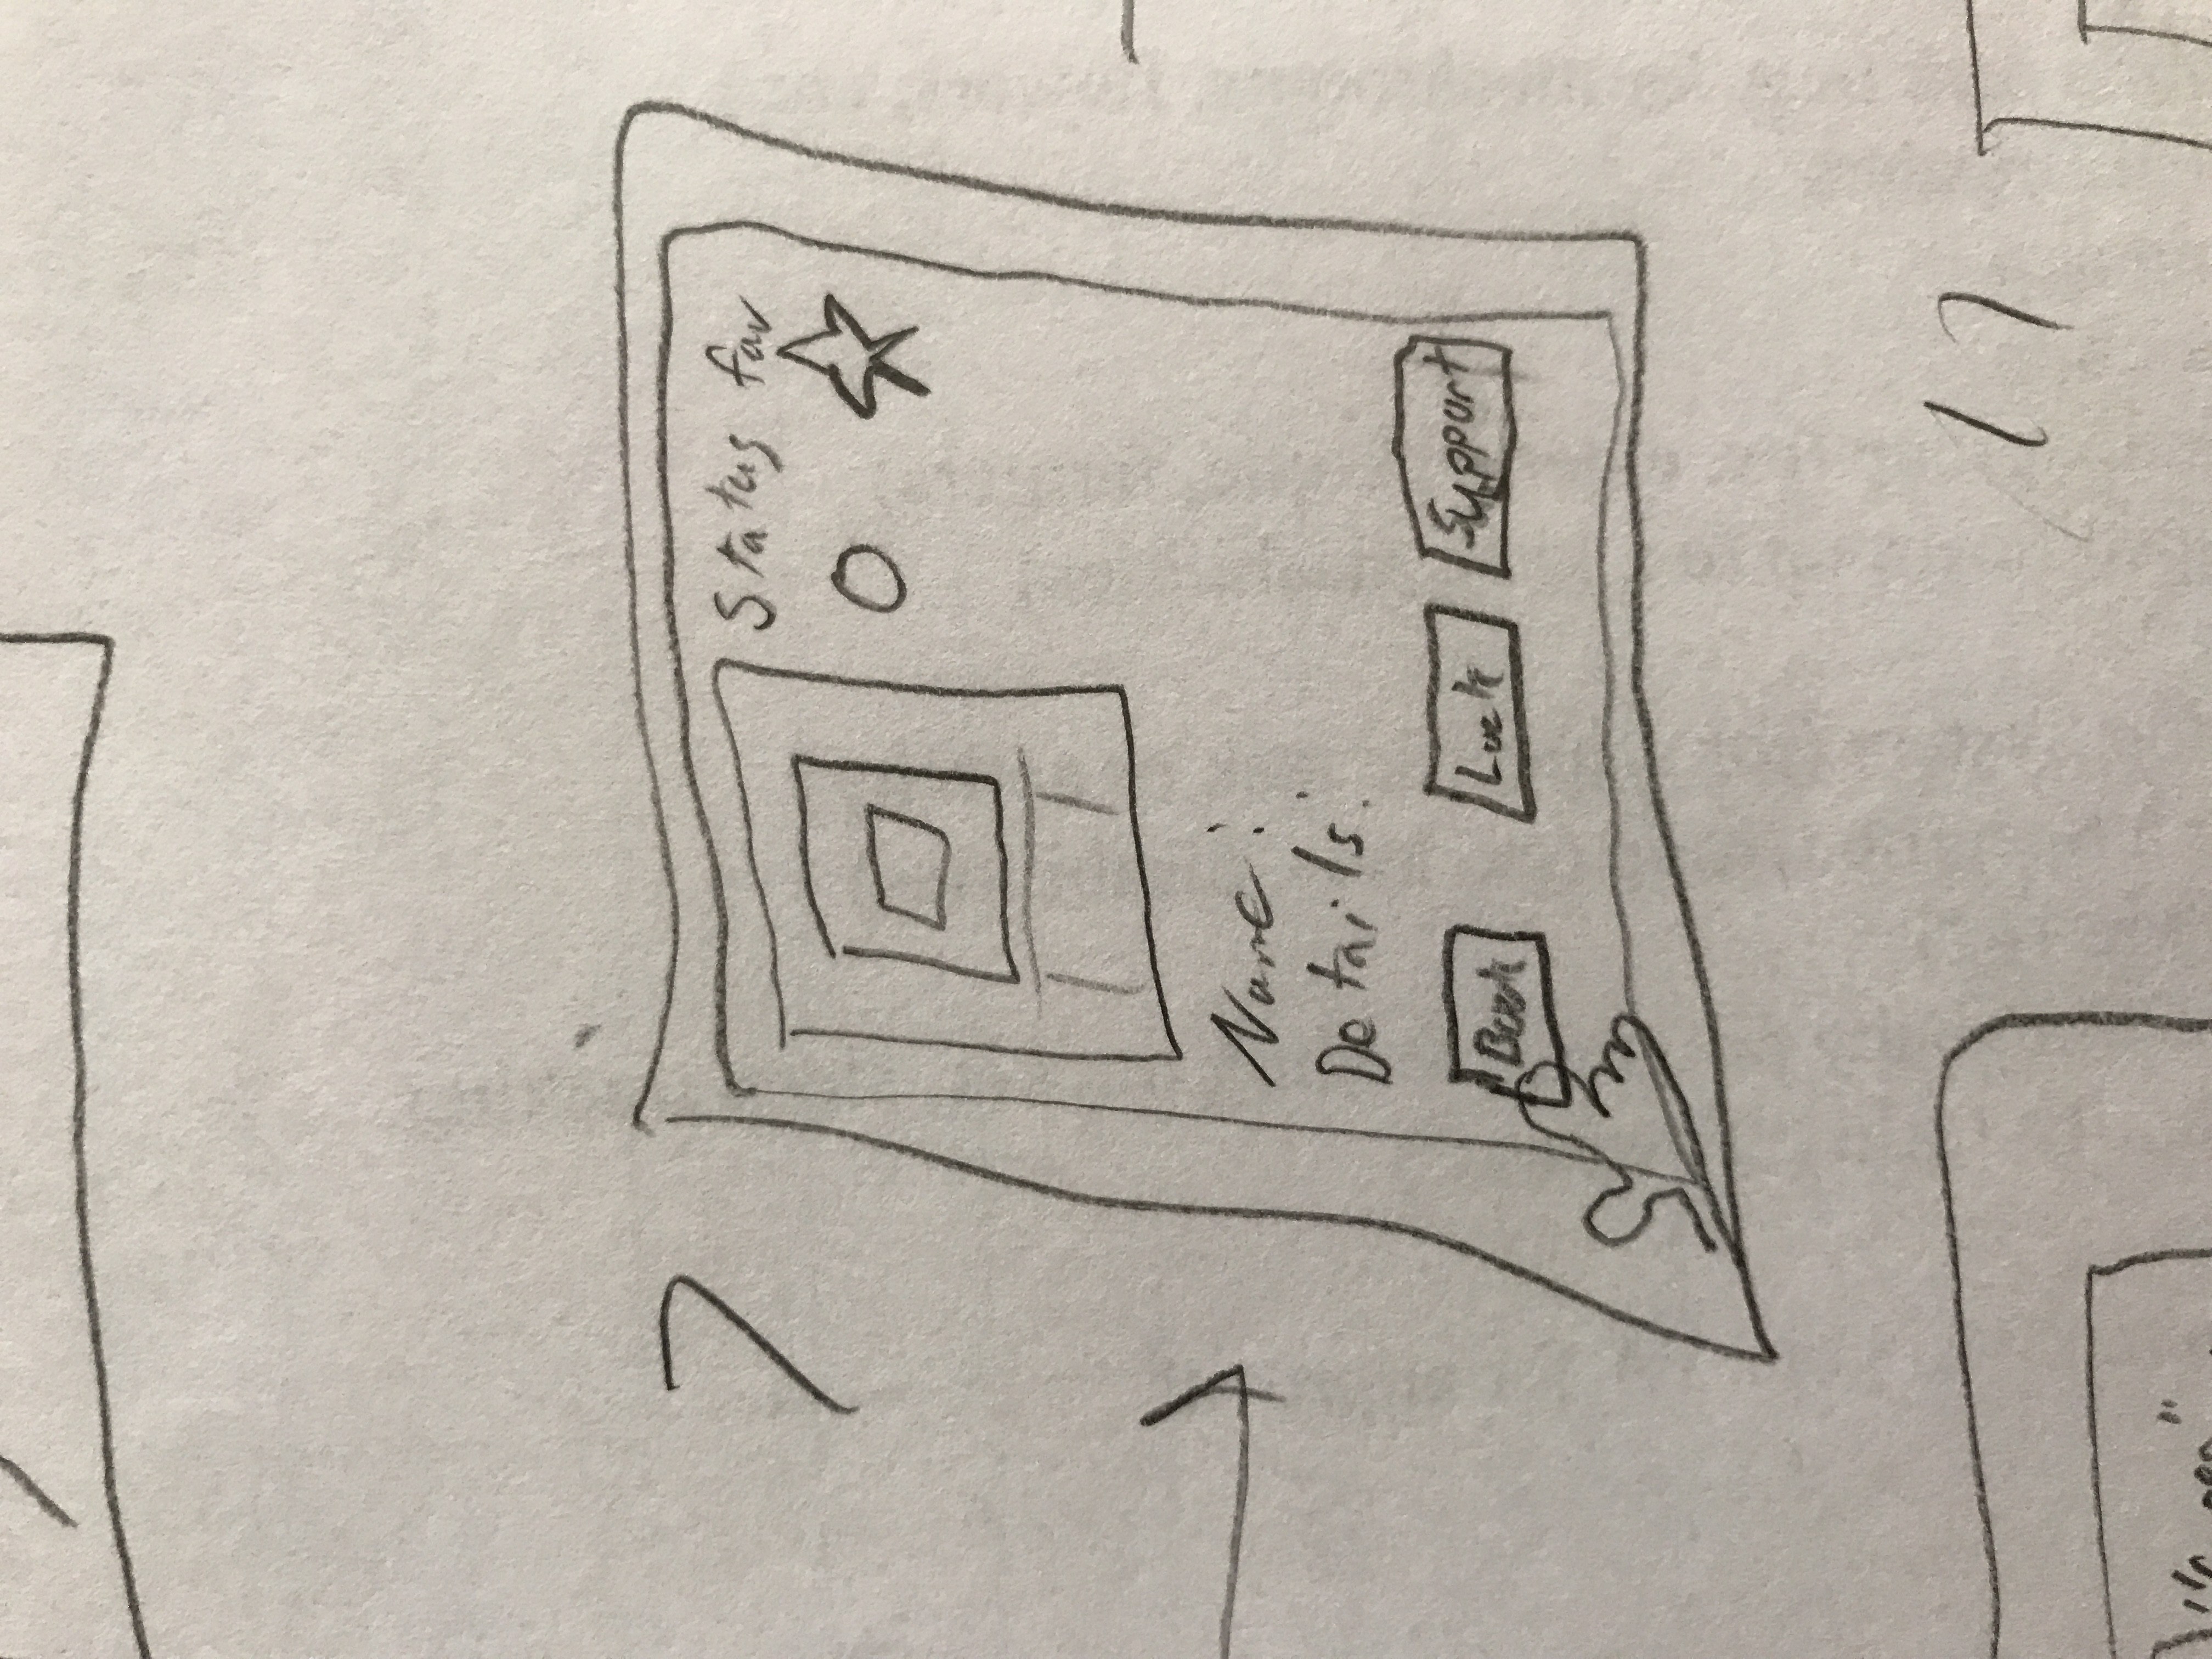 7
Status fav
Name:
Details:
Book Lock Support